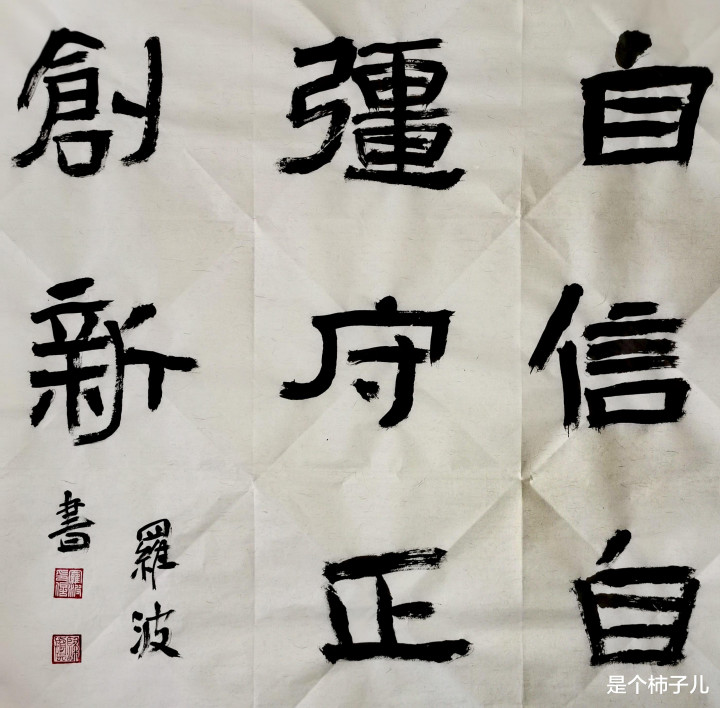 自信自
彊守正
創新
羅波
書
是个柿子儿